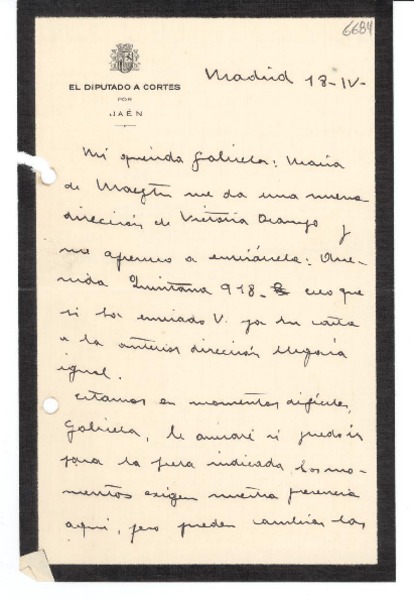 6684
EL DIPUTADO A CORTES
POR
JAÉN
Madrid 18-IV-
Mi querida Gabriela: María
de Maeztu me da una nueva
dirección de Victoria Ocampo y
me apresuro a enviársela: Ave-
nida Quintana 918- creo que
si ha enviado V. ya su carta
a la anterior dirección llegaría
igual.
Estamos en momentos difíciles,
Gabriela, le avisaré si puedo ir
para la fecha indicada, los mo-
mentos exigen nuestra presencia
aquí, pero pueden cambiar las